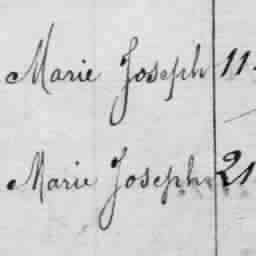 Marie Joseph 11.
Marie Joseph 21